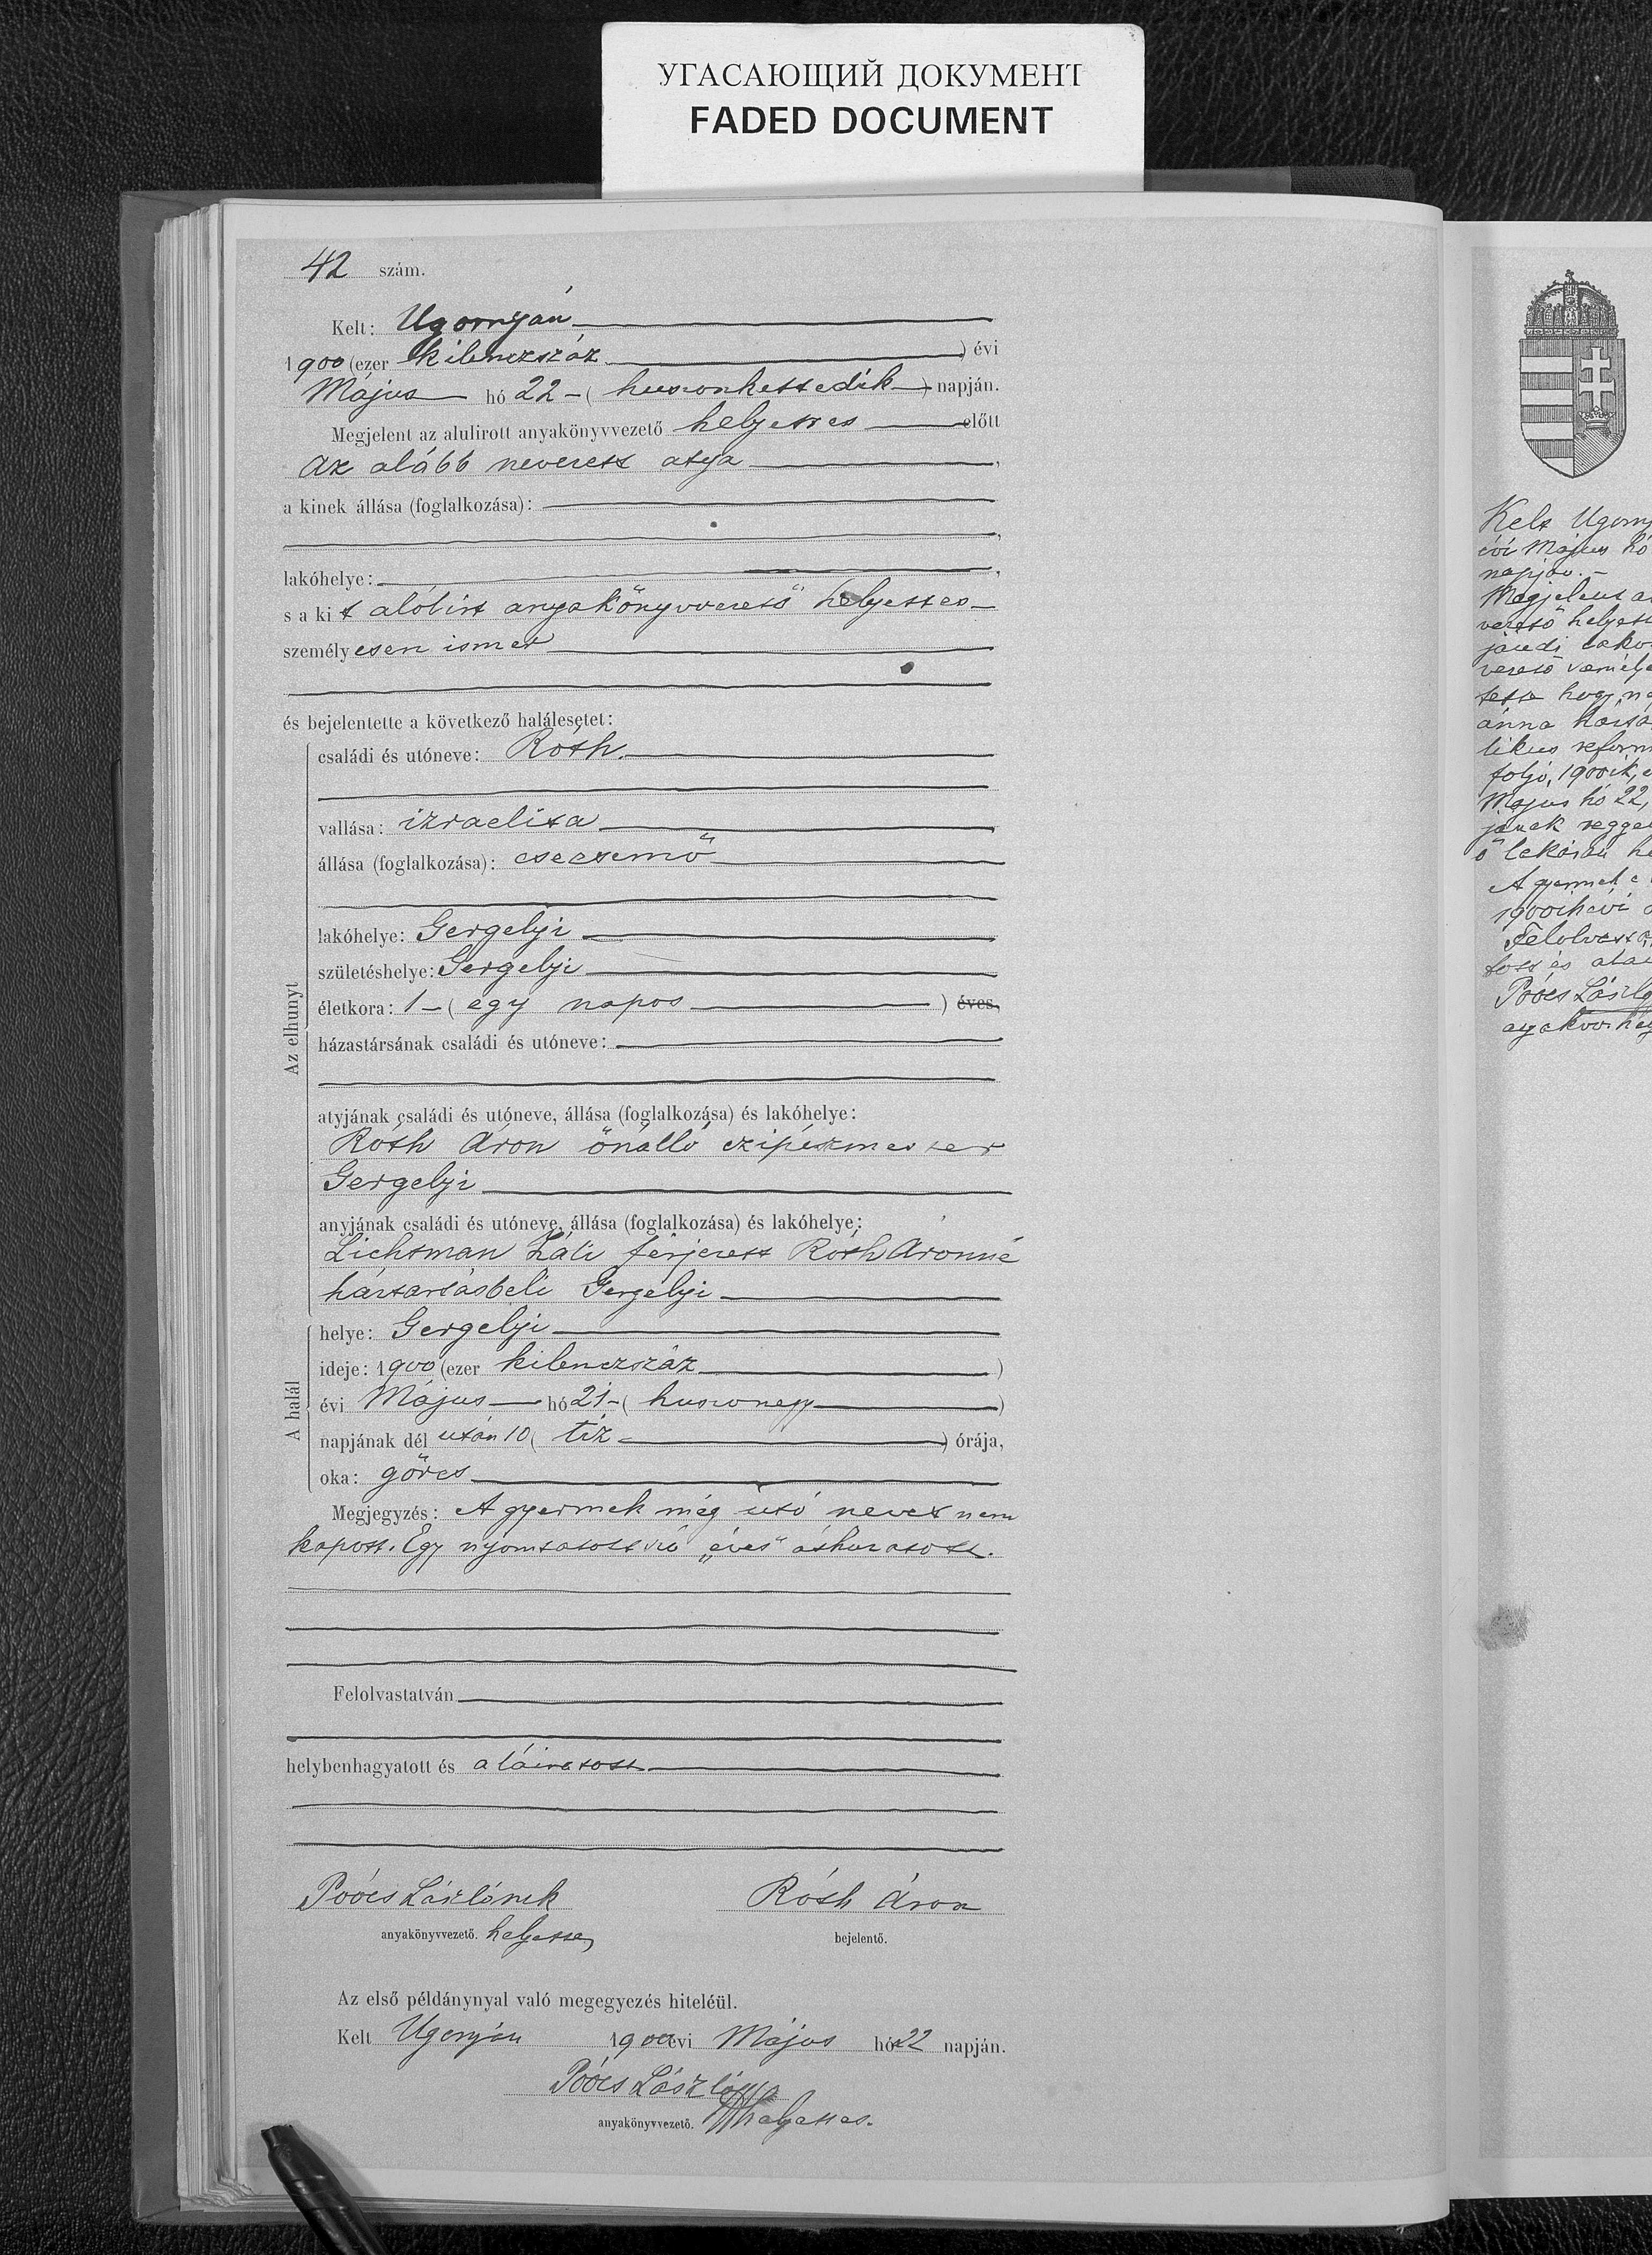 УГАСАЮЩИЙ ДОКУМЕНТ
FADED DOCUMENT
42 szám.
Kelt: Ugornyán
1900 (ezer kilenczszáz ) évi
Május hó 22 - ( huszonkettedik ) napján.
Megjelent az alulirott anyakönyvvezető helyettes előtt
Az alább nevezett atya,
a kinek állása (foglalkozása):
lakóhelye:
s a kit alólirt anyakönyvvezető helyettes
személyesen ismer
és bejelentette a következő halálesetet:
Az elhunyt
családi és utóneve: Róth.
vallása: izraelita
állása (foglalkozása): csecsemő
lakóhelye: Gergelyi
születéshelye: Gergelyi
életkora: 1 - ( egy napos ) éves,
házastársának családi és utóneve:
atyjának családi és utóneve, állása (foglalkozása) és lakóhelye:
Róth Áron önálló czipészmester
Gergelyi
anyjának családi és utóneve, állása (foglalkozása) és lakóhelye:
Lichtman Háli férjezett Róth Áronné
háztartásbeli Gergelyi
A halál
helye: Gergelyi
ideje: 1900 (ezer kilenczszáz )
évi Május hó 21 - ( huszonegy )
napjának dél után 10 ( tiz ) órája,
oka: görcs
Megjegyzés: A gyermek még utó nevet nem
kapott. Egy nyomtatott szó „éves” áthuzatott.
Felolvastatván
helybenhagyatott és aláiratott
Poócs Lászlónek Róth Áron
anyakönyvvezető. helyettes bejelentő.
Az első példánynyal való megegyezés hiteléül.
Kelt Ugornyán 1900 évi Május hó 22 napján.
Poócs László
anyakönyvvezető. helyettes.
Kelt Ugorny
évi Május hó
napján.-
Megjelent a
vezető helyett
járdi lako
vezető személye
tette hogy
ánna
likus reform
folyó, 1900ik, e
Május hó 22,
jának reggel
ő lakásán he
A gyermek e
1900ik évi
Felolvasta
tott és aláí
Poócs Lászl